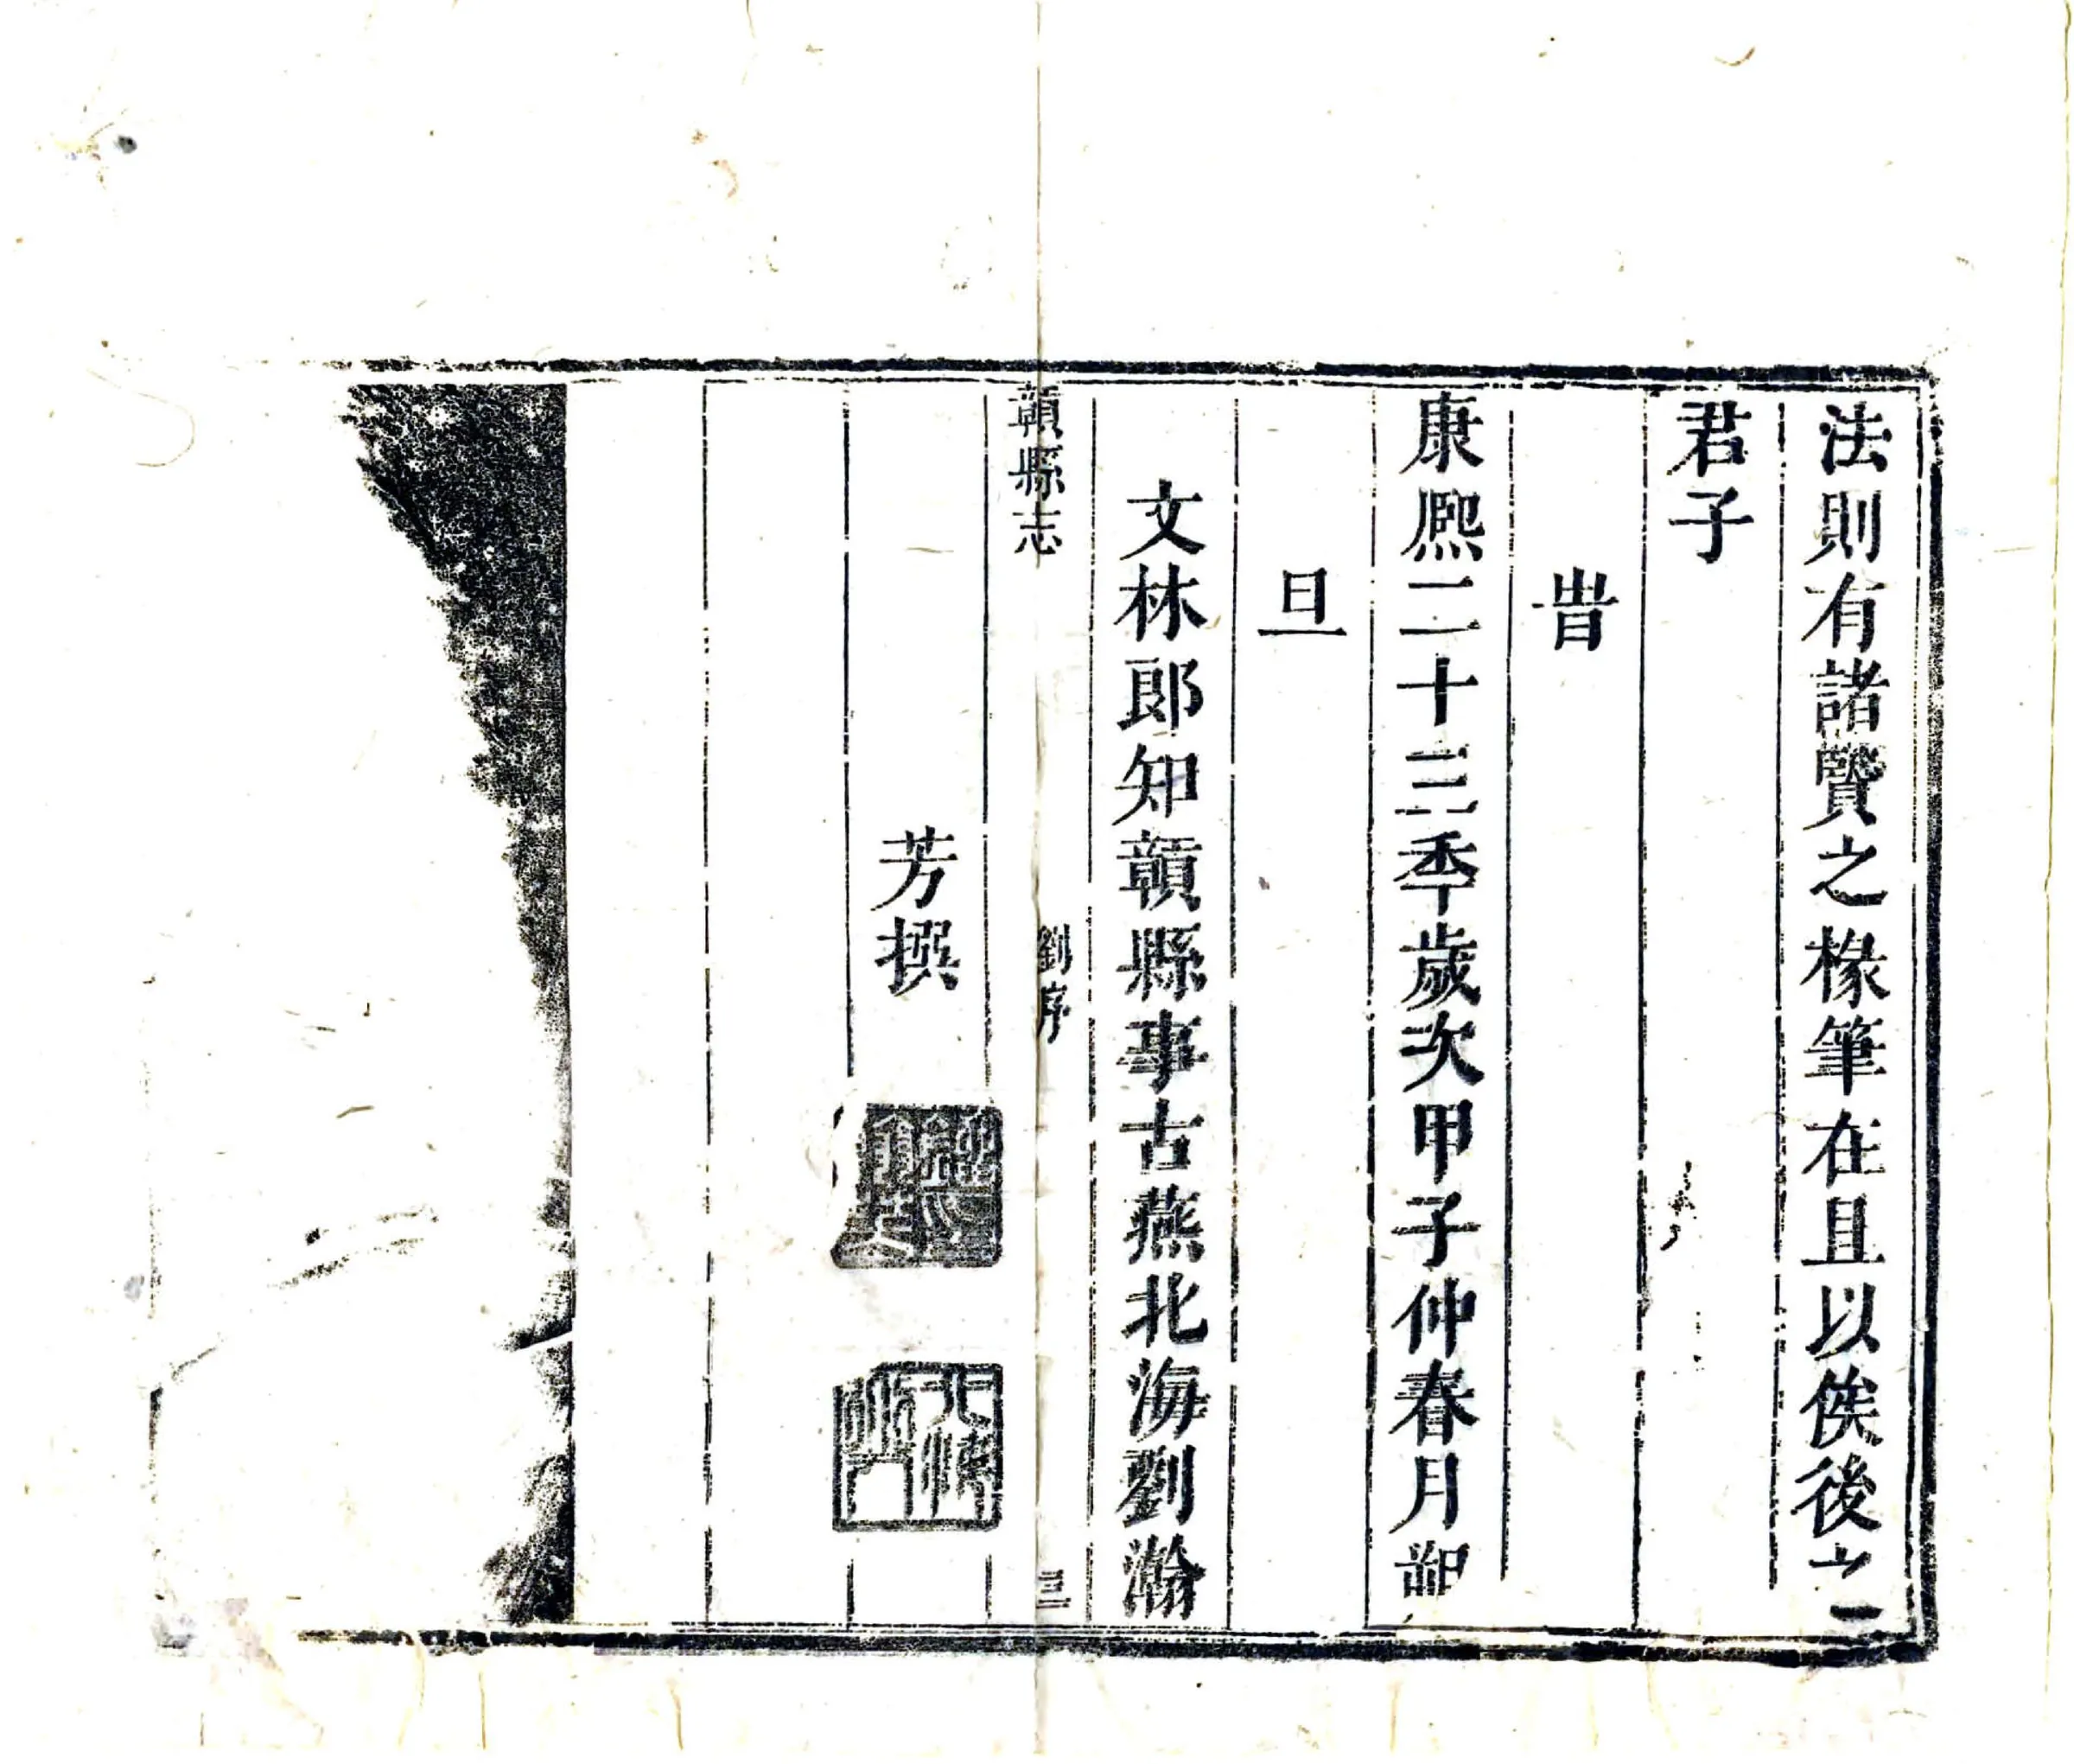 法則有諸賢之椽筆在且以俟後之
君子
旹
康熈二十三秊歲次甲子仲春月
旦
文林郎知贛縣事古燕北海劉瀚
贛縣志
劉序
三
芳撰